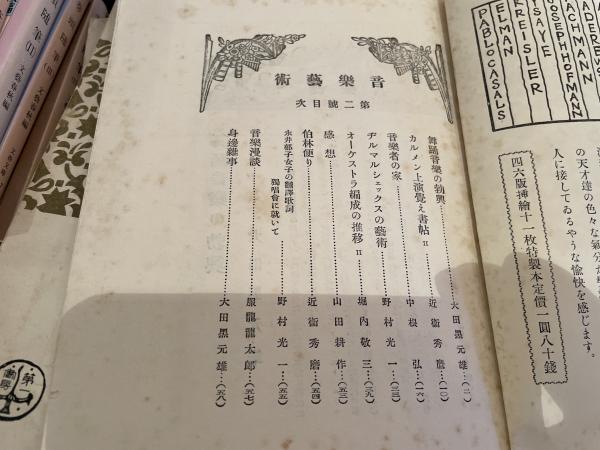 音樂藝術
第二號目次
舞踊音樂の勃興……大田黑元雄…(二)
カルメン上演覺え書帖 II……近衞秀麿…(一〇)
音樂者の家……中根弘…(一六)
ヂルマルシェックスの藝術……野村光一…(二三)
オーケストラ編成の推移 II……堀內敬三…(二九)
感想……山田耕作…(五三)
伯林便り……近衞秀麿…(五四)
永井郁子女子の飜譯歌詞
獨唱會に就いて……野村光一…(五五)
音樂漫談……服部龍太郎…(五七)
身邊雜事……大田黑元雄…(五八)
KREISLER
ELMAN
PABLO CASALS
JOSEPH HOFMANN
の天才達の色々な氣分
人に接してゐるやうな愉快を感じます。
四六版挿繪十一枚特製本定價一圓八十錢
第一書房